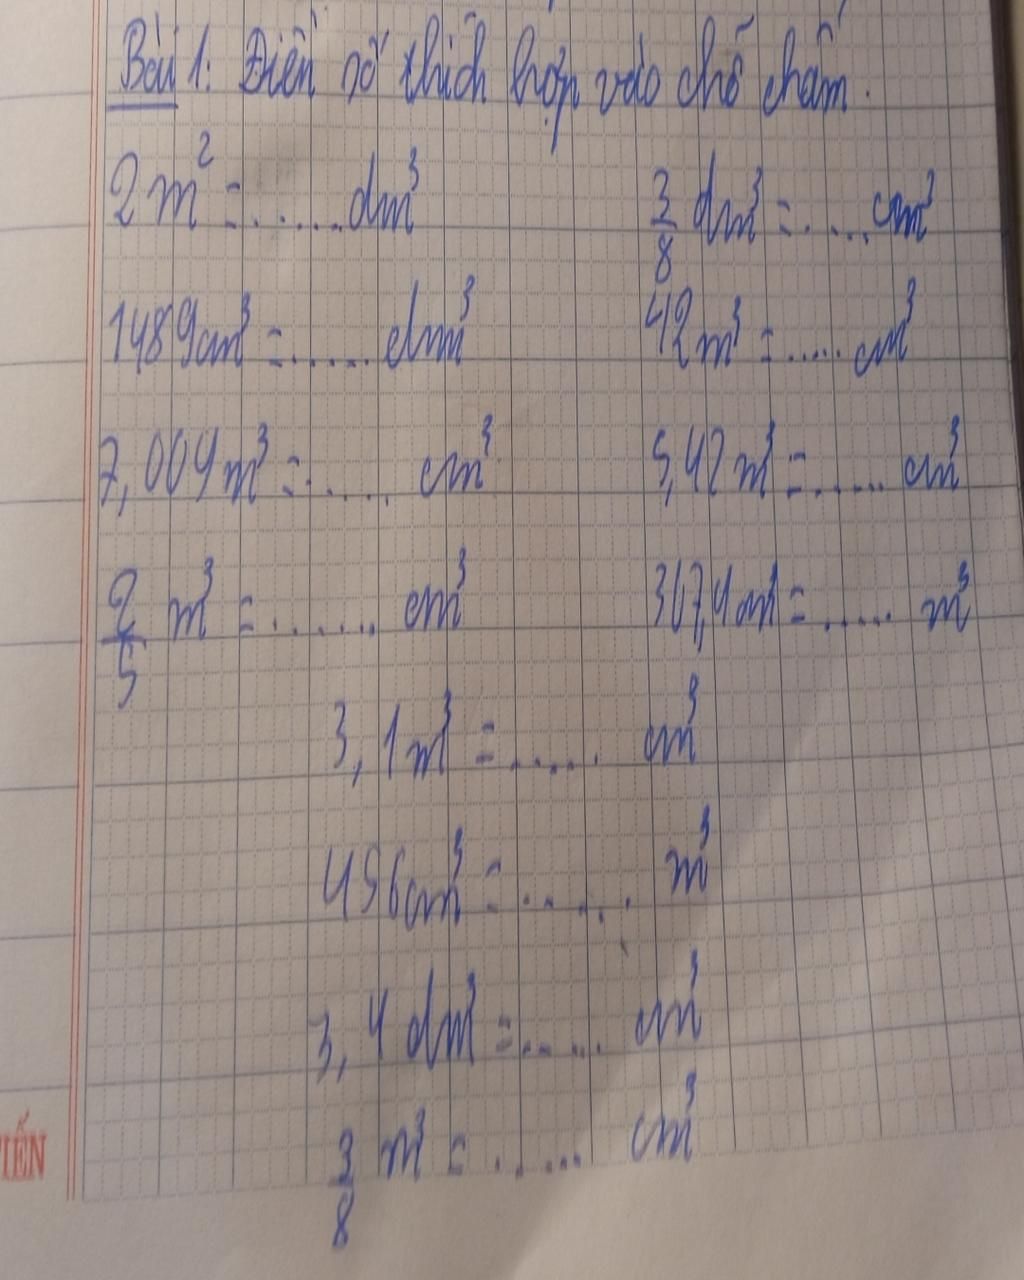 Bài 1: Điền số thích hợp vào chỗ chấm.
2 m² = ...... dm³
3/8 dm³ = ..... cm³
1489cm³ = ...... dm³
42m³ = ..... cm³
7,009m³ = ..... cm³
5,42 m³ = ...... cm³
2/5 m³ = ....... cm³
367,4cm³ = ..... m³
3,1m³ = ..... cm³
456cm³ = ...... m³
3,4 dm³ = ..... cm³
3/8 m³ = ..... cm³
IẾN